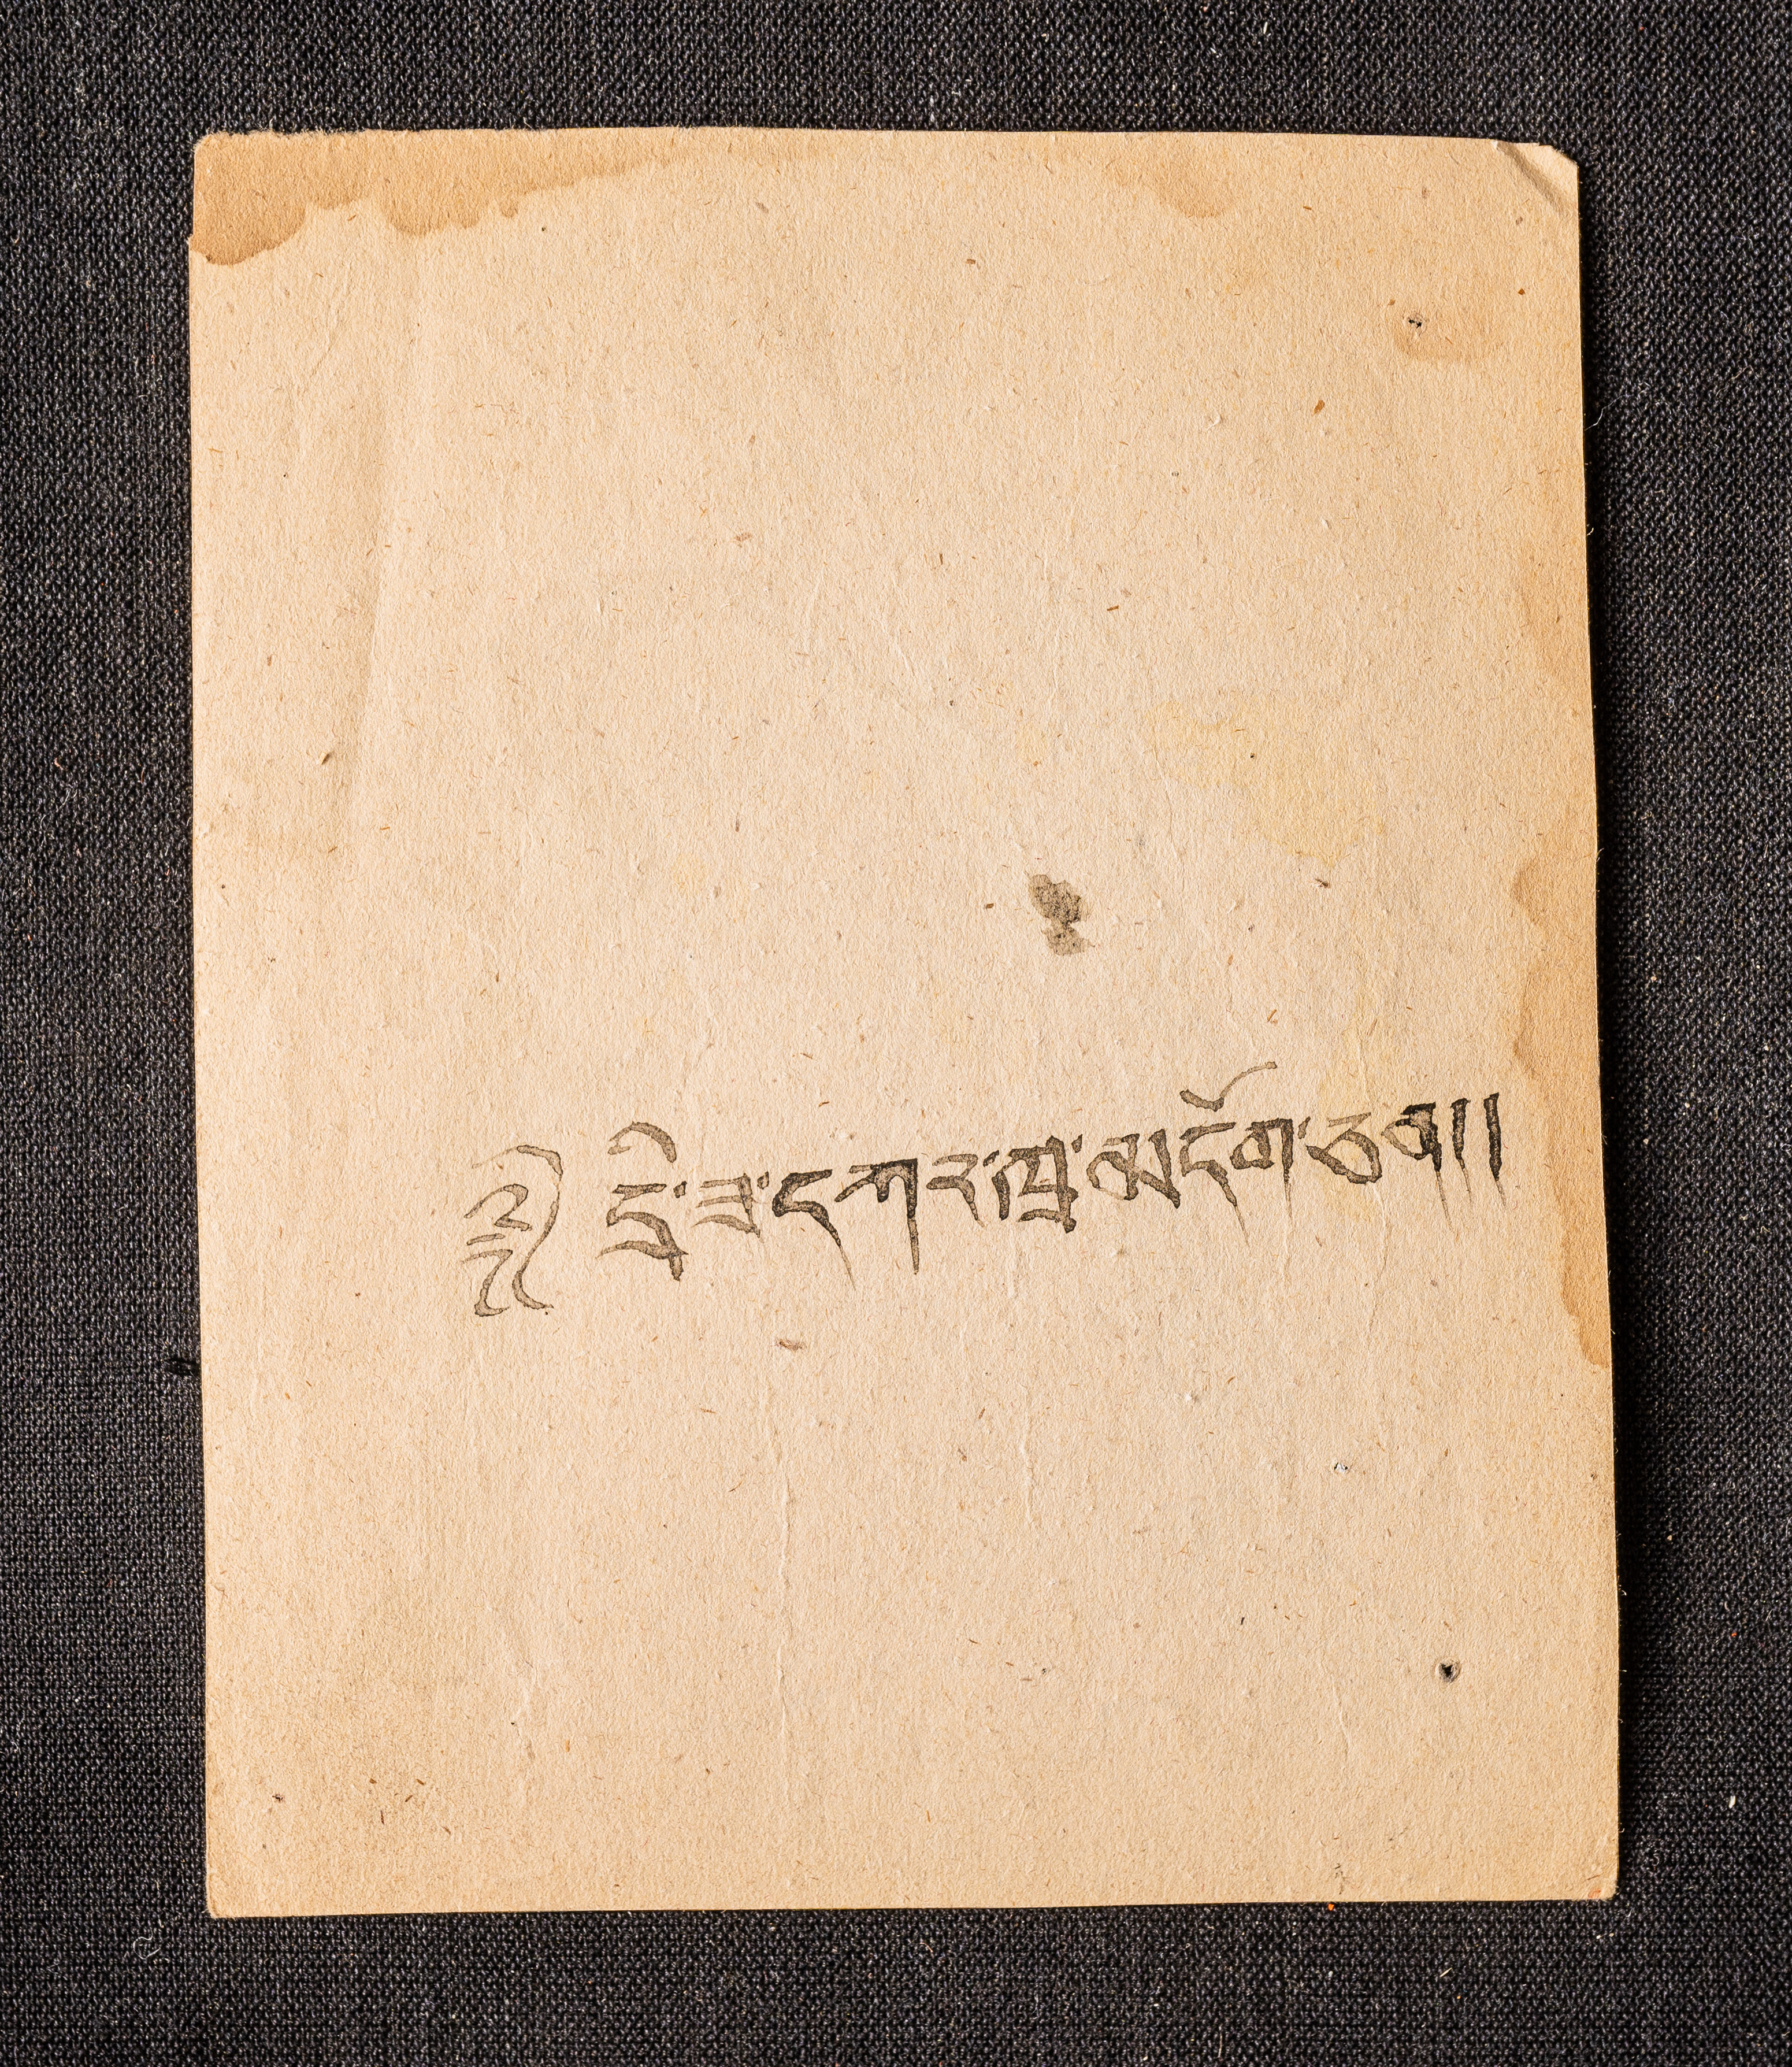 ༄༅། དྲི་ཟ་དཀར་ཁྲ་མདོག་ཅན།།